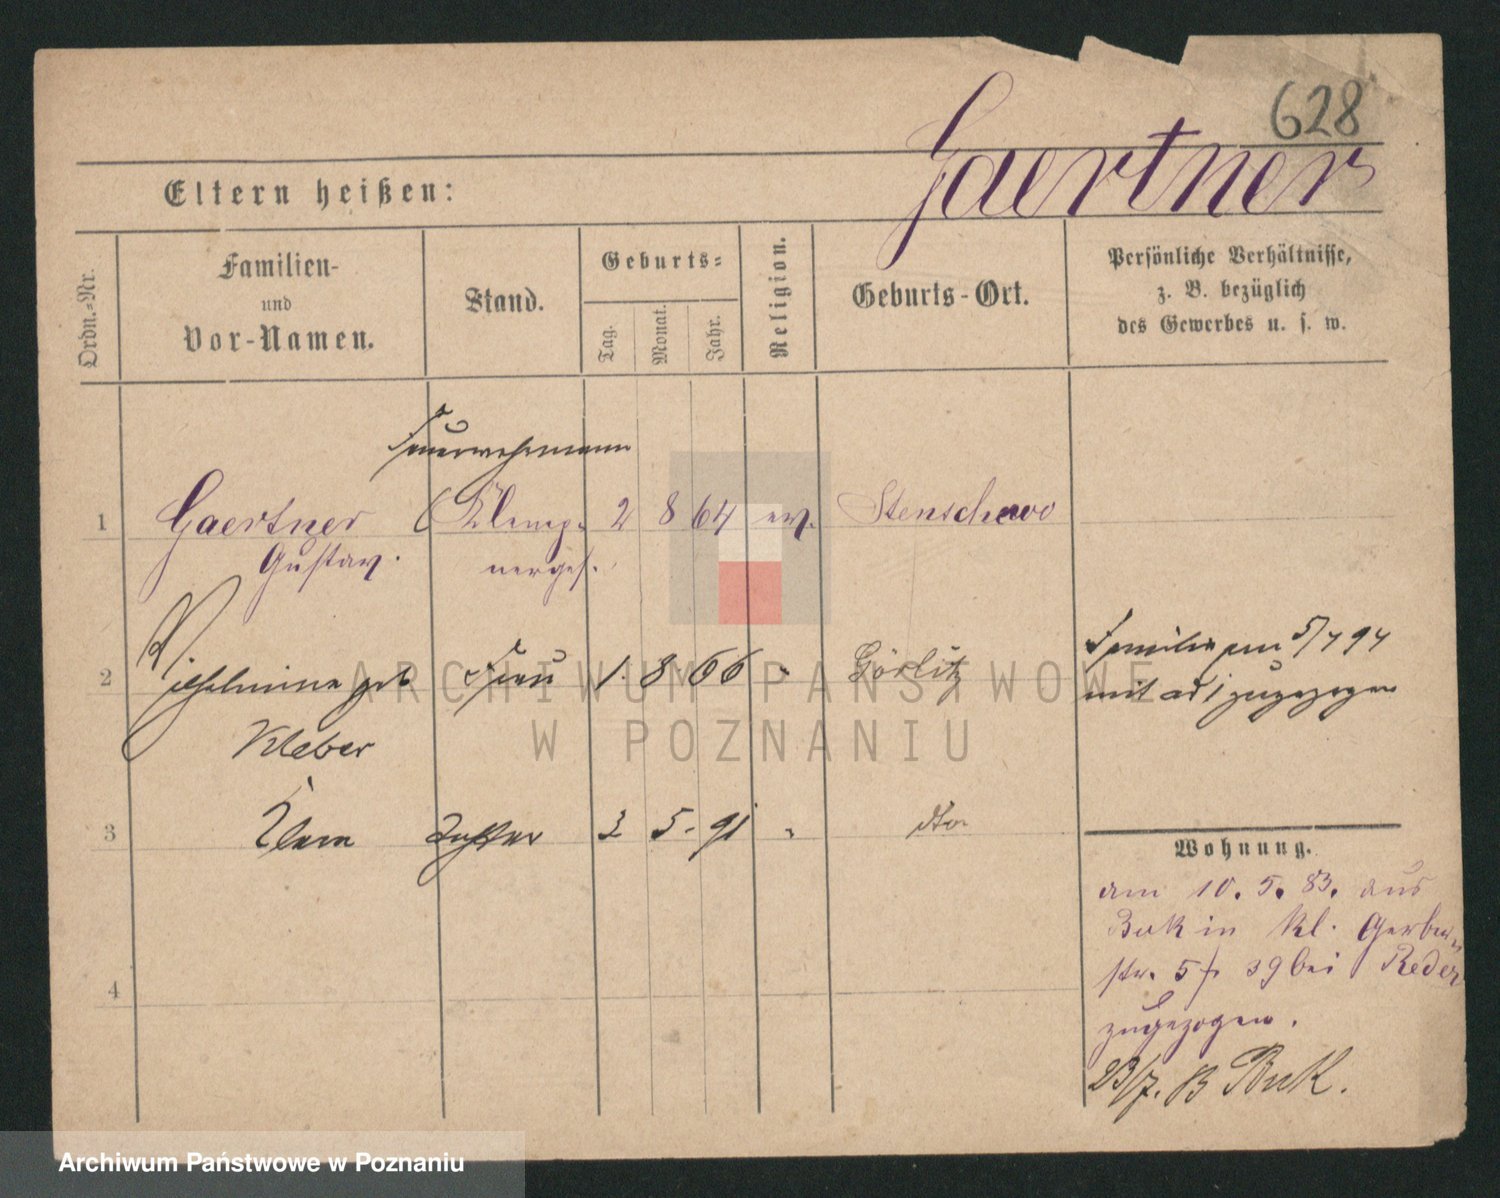 628
Gaertner
Eltern heißen:
Ordn.-Nr.
Familien-
und
Vor-Namen.
Stand.
Geburts-
Tag.
Monat.
Jahr.
Religion.
Geburts-Ort.
Persönliche Verhältnisse,
z. B. bezüglich
des Gewerbes u. s. w.
Feuerwehrmann
1 Gaertner (Klemp- 2 8 64 ev. Stenschewo
Gustav. nerges.
2 Wilhelmine geb Frau 1. 8 66 " Görlitz
Kleber
Familie am 5/7 94
mit ad 1 zugezogen
3 Tochter 3 5. 91 " dto
4
Wohnung.
am 10. 5. 83. aus
Buk in Kl. Gerber-
str. 5 39 bei Reder
zugezogen.
23/7. B Buk.
ARCHIWUM PAŃSTWOWE
W POZNANIU
Archiwum Państwowe w Poznaniu